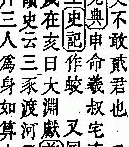 不敢貳君也
典申命羲叔宅
史記作 又
在亥曰大淵獻
史云三豕渡河
二人為身如算